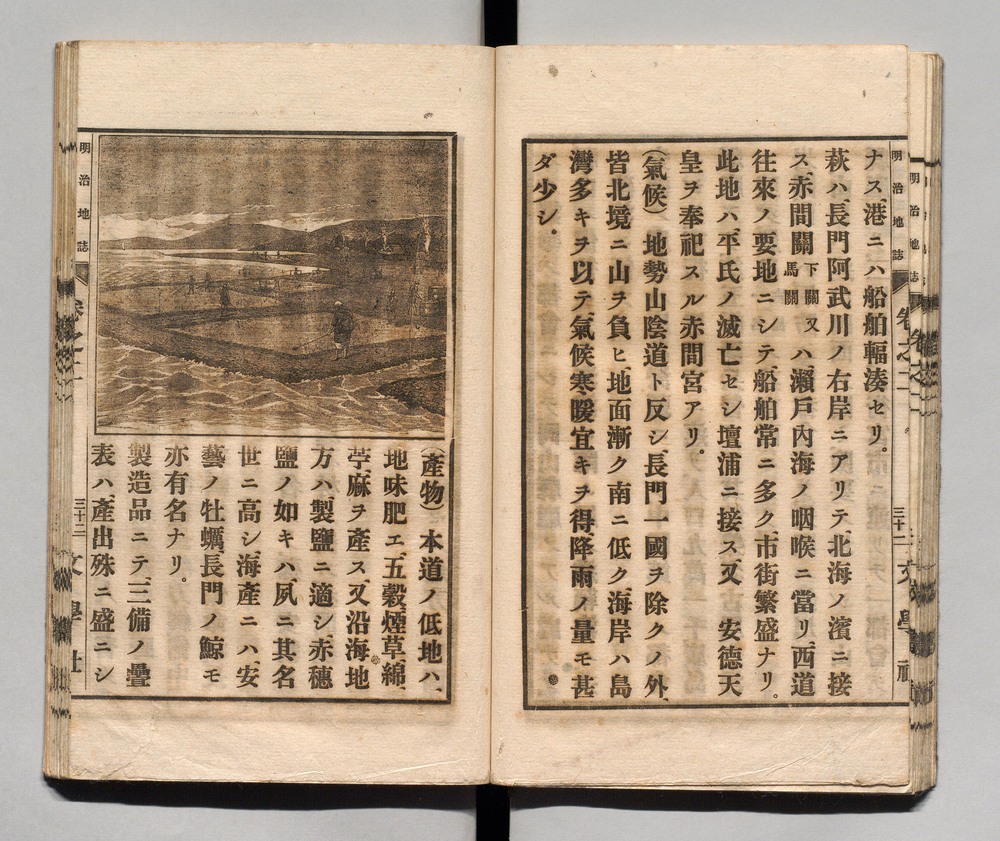 ナス、港ニハ船舶輻湊セリ。
萩ハ、長門阿武川ノ右岸ニアリテ北海ノ濱ニ接
ス、赤間關下關又馬關ハ、瀨戸內海ノ咽喉ニ當リ、西道
往來ノ要地ニシテ、船舶常ニ多ク、市街繁盛ナリ。
此地ハ、平氏ノ滅亡セシ壇浦ニ接ス、又安德天
皇ヲ奉祀スル赤間宮アリ。
(氣候)地勢山陰道ト反シ、長門一國ヲ除クノ外、
皆北境ニ山ヲ負ヒ、地面漸ク南ニ低ク海岸ハ島
灣多キヲ以テ、氣候寒暖宜キヲ得、降雨ノ量モ甚
ダ少シ。
明治地誌
卷之二
三十二
文學社
(產物)本道ノ低地ハ、
地味肥エ、五穀、煙草、綿、
苧麻ヲ產ス、又沿海地
方ハ、製鹽ニ適シ、赤穗
鹽ノ如キハ、夙ニ其名
世ニ高シ、海產ニハ、安
藝ノ牡蠣、長門ノ鯨モ
亦有名ナリ。
製造品ニテ、三備ノ疊
表ハ、產出殊ニ盛ニシ
明治地誌
三十二
文學社